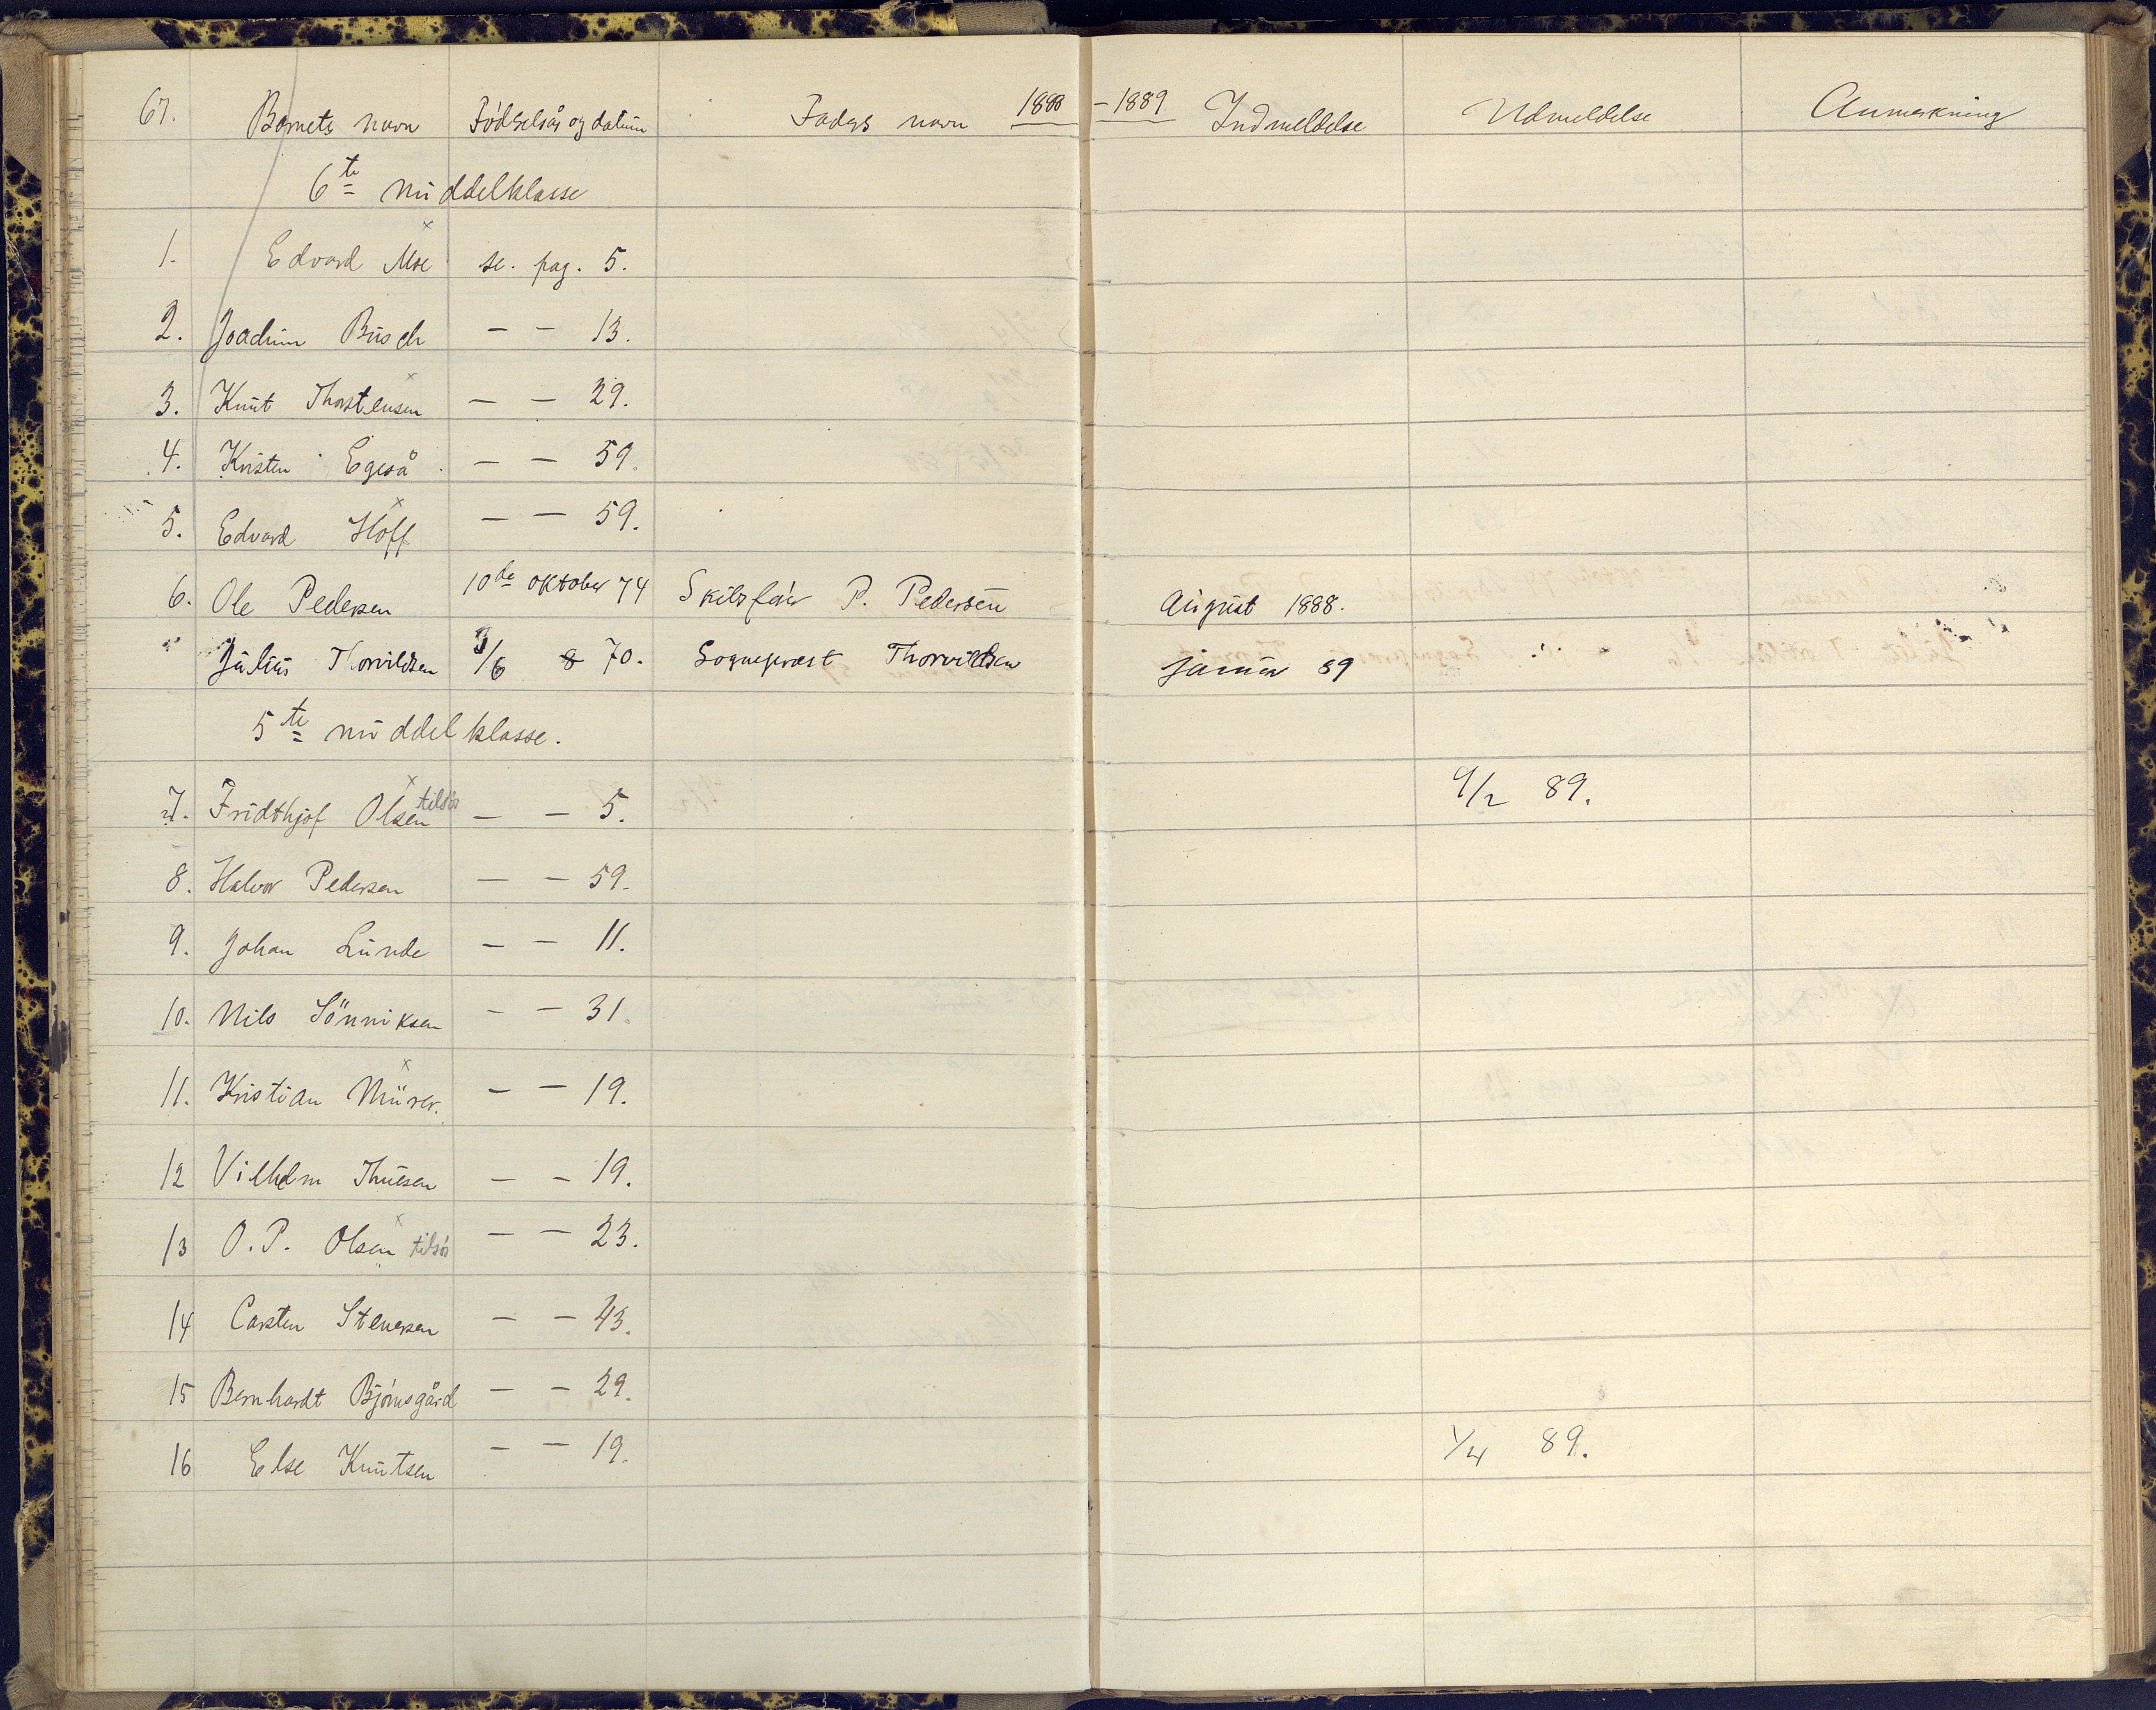 67. Barnets navn Fødselsår og datum Faders navn 1888 – 1889 Indmeldelse Udmeldelse Anmerkning
6te middelklasse
1. Edvard Moe se. pag. 5.
2. Joachim Busch — — 13.
3. Knut Thorstensen — — 29.
4. Kristen Egeså — — 59.
5. Edvard Hoff — — 59.
6. Ole Pedersen 10de oktober 74 P. Pedersen August 1888.
Julius Thorvildsen /6 70. Sogneprest Thorvildsen januar 89
5te middelklasse.
7. Fridthjof Olsen tilsøs — — 5. 9/2 89.
8. Halvor Pedersen — — 59.
9. Johan Lunde — — 11.
10. Nils Sönniksen — — 31.
11. Kristian Mürer. — — 19.
12 Vilhelm Thuesen — — 19.
13 O. P. Olsen tilsøs — — 23.
14 Carsten Stenersen — — 43.
15 Bernhardt Bjørnsgård — — 29.
16 Else Knutsen — — 19. 1/4 89.